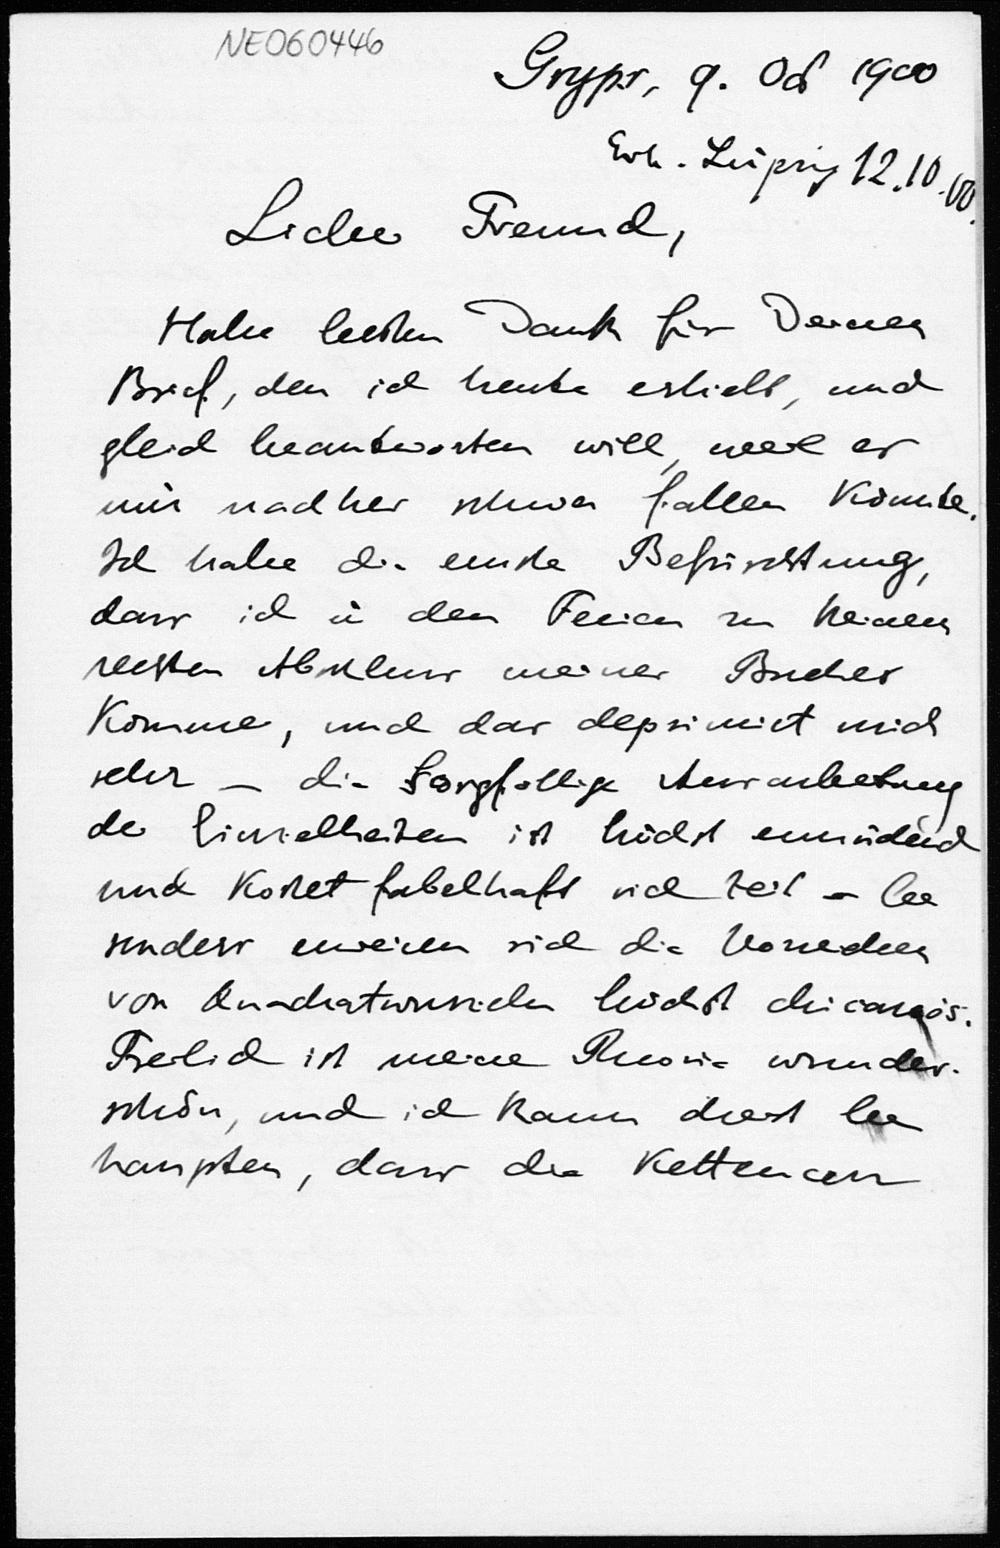 NE060446
Gryps, 9. Oct 1900
Erh. Leipzig 12.10.00.
Lieber Freund,
Habe besten Dank für Deinen
Brief, den ich heute erhielt, und
gleich beantworten will, weil es
mir nachher schwer fallen könnte.
Ich habe die ernste Befürchtung,
dass ich in den Ferien zu keinem
rechten Abschluss meiner Buches
komme, und das deprimirt mich
sehr – die sorgfältige Ausarbeitung
der Einzelheiten ist höchst ermüdend
und kostet fabelhaft viel Zeit – be
sonders erweisen sich die Vorzeichen
von Quadratwurzeln höchst chicanös.
Freilich ist meine Theorie wunder-
schön, und ich kann dreist be
haupten, dass die